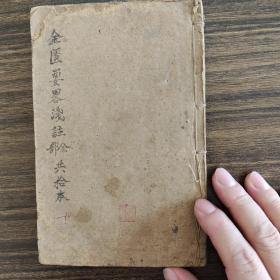 金匱要畧淺註全部共拾本